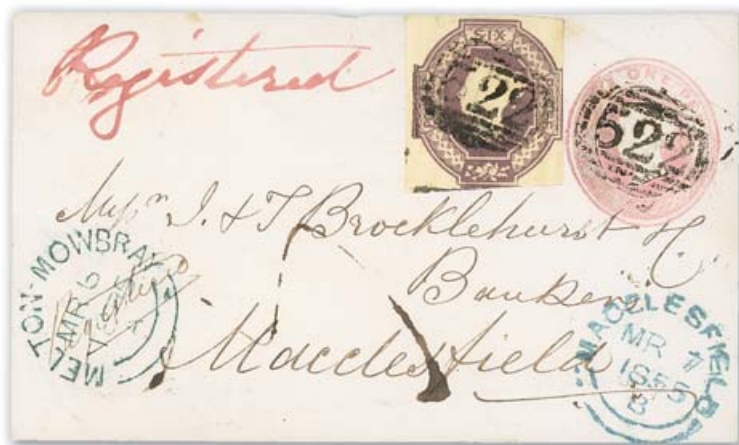 Registered
SIX
522
ONE
522
Messrs J. & T. Brocklehurst &
Bankers
Macclesfield
MELTON-MOWBRAY
MR 6
MACCLESFIELD
MR 7
1855
B